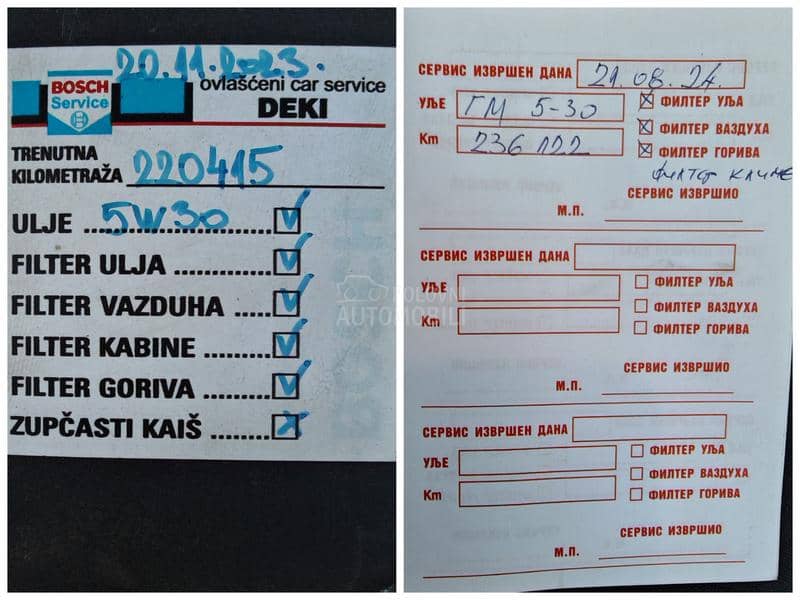 20.11.2023.
BOSCH
Service
ovlašćeni car service
DEKI
TRENUTNA
KILOMETRAŽA 220415
ULJE 5W30
FILTER ULJA
FILTER VAZDUHA
FILTER KABINE
FILTER GORIVA
ZUPČASTI KAIŠ
POLOVNI
AUTOMOBILI
СЕРВИС ИЗВРШЕН ДАНА 21.08.24.
УЉЕ ГМ 5-30 ФИЛТЕР УЉА
ФИЛТЕР ВАЗДУХА
Km 236122 ФИЛТЕР ГОРИВА
ФИЛТЕР КЛИМЕ
СЕРВИС ИЗВРШИО
М.П.
СЕРВИС ИЗВРШЕН ДАНА
УЉЕ ФИЛТЕР УЉА
ФИЛТЕР ВАЗДУХА
Km ФИЛТЕР ГОРИВА
СЕРВИС ИЗВРШИО
М.П.
СЕРВИС ИЗВРШЕН ДАНА
УЉЕ ФИЛТЕР УЉА
ФИЛТЕР ВАЗДУХА
Km ФИЛТЕР ГОРИВА
СЕРВИС ИЗВРШИО
М.П.